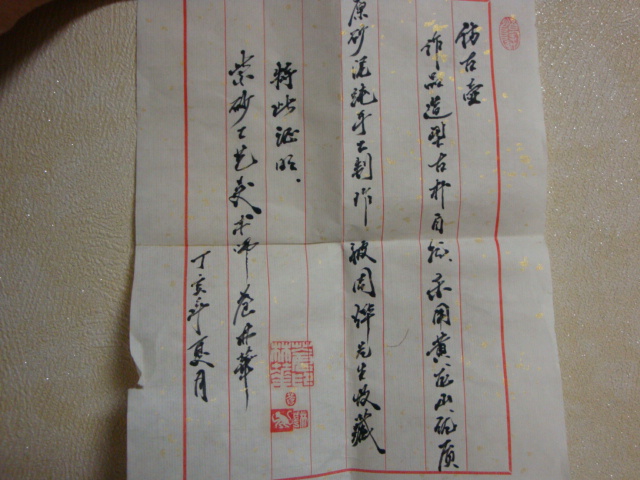 仿古壶
作品造型古朴自然采用黄龙山质
原砂泥纯手工制作被周烨先生收藏
特此证明、
紫砂工艺美术师華
丁亥年夏月